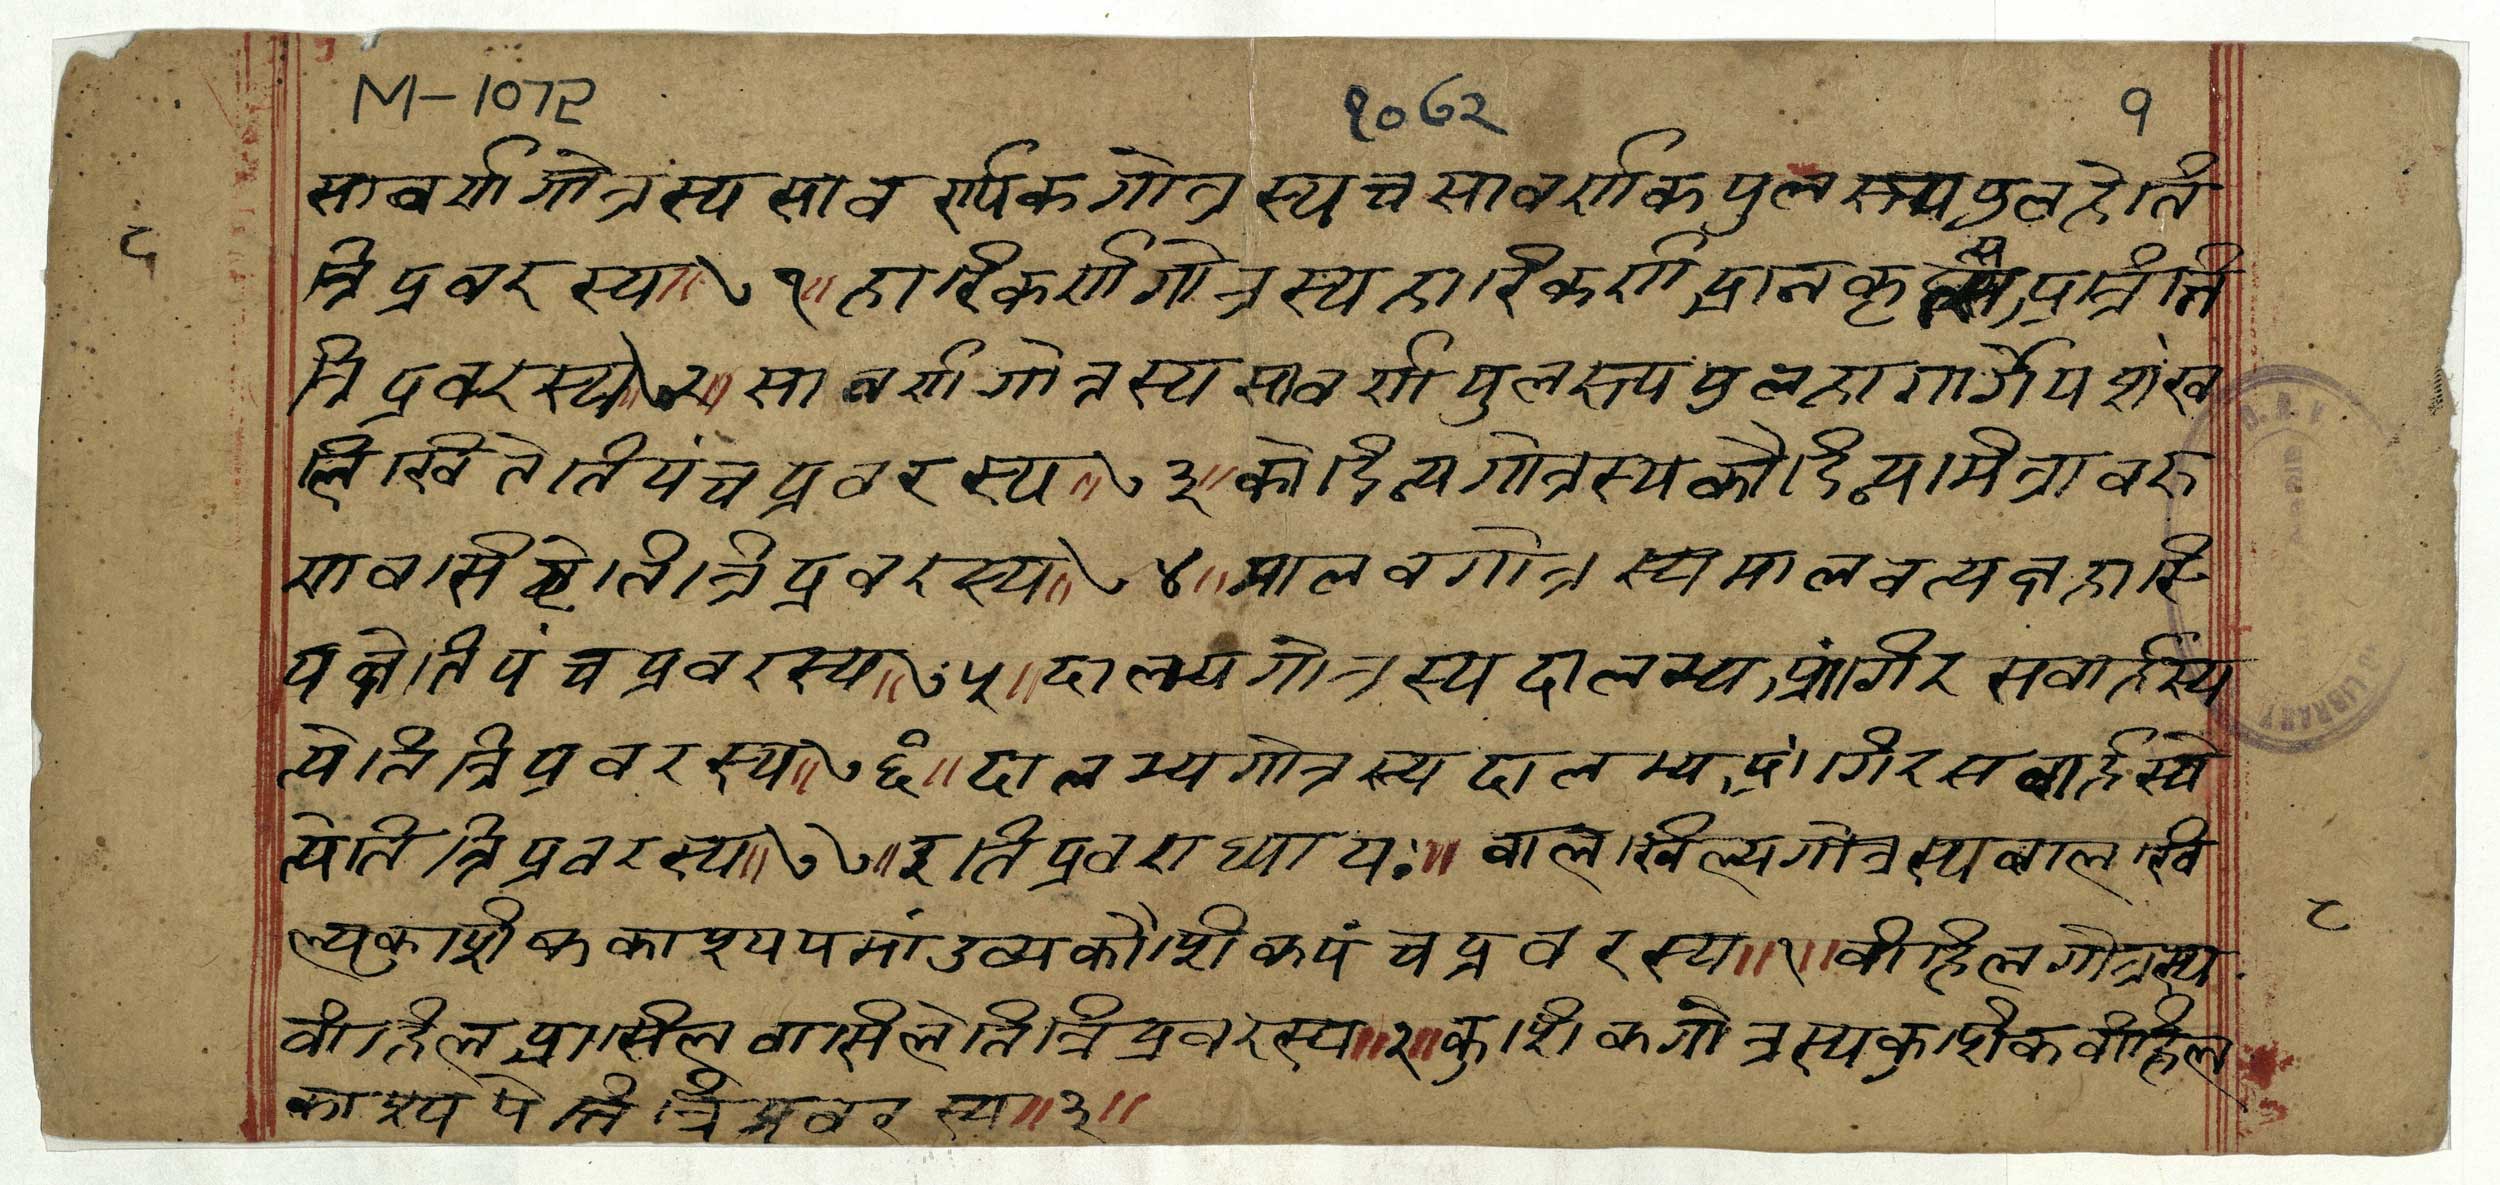 M-1072 १०७२ १
सावर्णगोत्रस्य सावर्ण्यकगोत्रस्य च सावर्णक पुलस्त्य पुलहेति
त्रिप्रवरस्य॥७१॥हारिकर्णगोत्रस्य हारिकर्ण प्रानकृ प्रात्रिति
त्रिप्रवरस्य॥७२॥सावर्णगोत्रस्य सावर्णपुलस्त्यपुलहागार्गेयशंख
लिखितेति पंचप्रवरस्य॥७३॥कौडिन्यगोत्रस्य कौडिन्यमैत्रावरु
णावसिष्ठेति त्रिप्रवरस्य॥७४॥मालवगोत्रस्य मालवत्यक्षहारि
यक्षेति पंचप्रवरस्य॥७५॥दालभ्यगोत्रस्य दालभ्य प्रांगिरसवार्हस्य
त्येति त्रिप्रवरस्य॥७६॥दालभ्यगोत्रस्य दालभ्य प्रांगिरसवार्हस्ये
त्येति त्रिप्रवरस्य॥७७॥इति प्रवराध्यायः॥वालखिल्यगोत्रस्य वालखि
ल्यकुशिककाश्यपमांडव्यकौशिकपंचप्रवरस्य॥१॥वोहिलगोत्रस्य
वोहिल प्रासिल वासिलेति त्रिप्रवरस्य॥२॥कुशिकगोत्रस्य कुशिकवोहिल
काश्यपेति त्रिप्रवरस्य॥३॥
LIBRARY